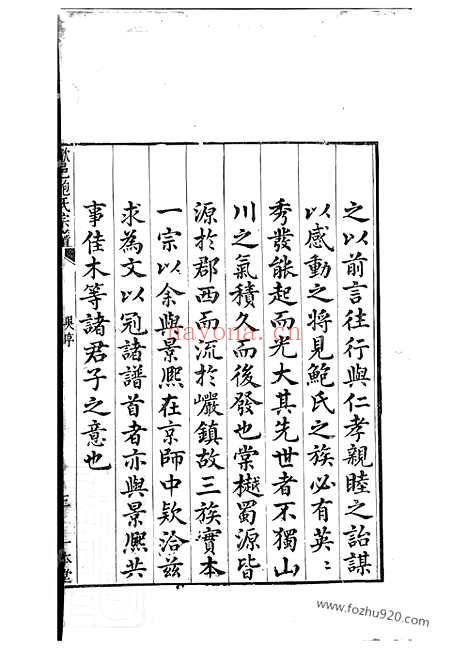 之以前言往行與仁孝親睦之詒謀
以感動之將見鮑氏之族必有英〻
秀發能起而光大其先世者不獨山
川之氣積久而後發也棠樾蜀源皆
源於郡西而流於巖鎮故三族實本
一宗以余與景熈在京師中欵洽茲
求為文以冠諸譜首者亦與景熈共
事佳木等諸君子之意也
歙邑鮑氏宗譜
nayona.cn
www.fozhu920.com